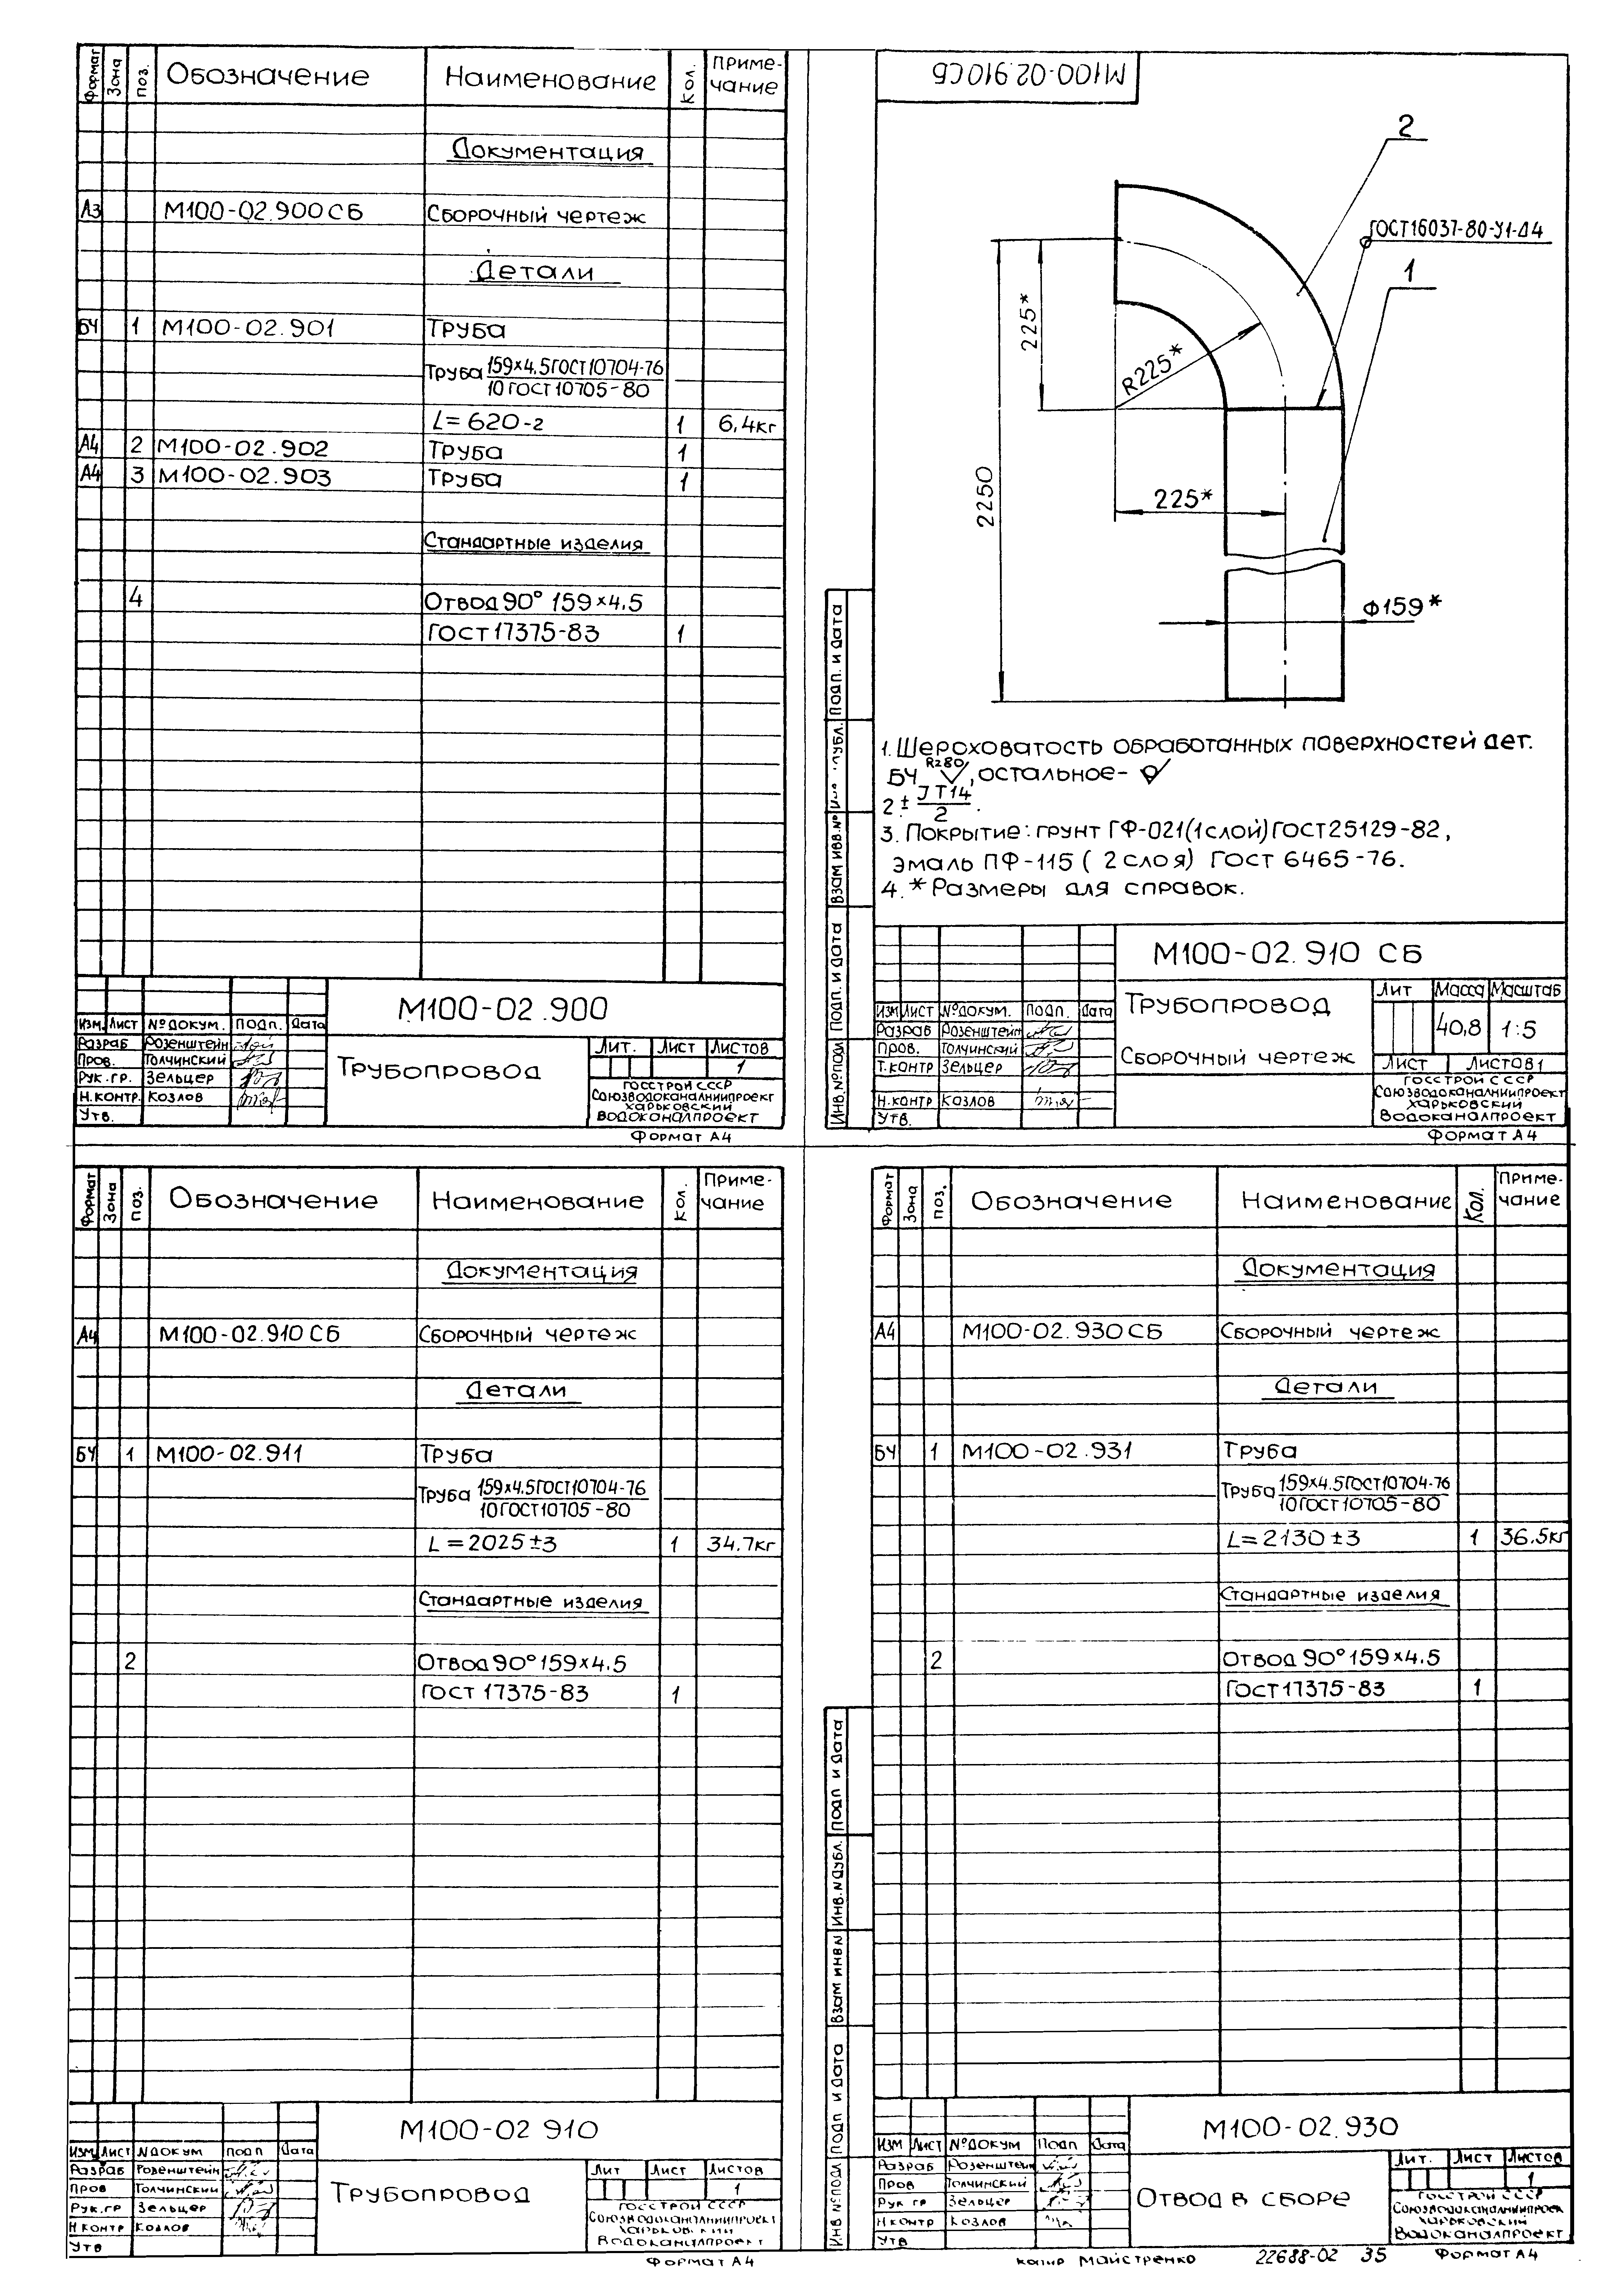 Формат Зона Поз. Обозначение Наименование Кол. Приме-
чание
Документация
А3 М100-02.900 СБ Сборочный чертеж
Детали
БЧ 1 М100-02.901 Труба
Труба 159×4.5 ГОСТ 10704-76
10 ГОСТ 10705-80
L=620-2 1 6,4кг
А4 2 М100-02.902 Труба 1
А4 3 М100-02.903 Труба 1
Стандартные изделия
4 Отвод 90° 159×4.5
ГОСТ 17375-83 1
М100-02.900
Изм. Лист №докум. Подп. Дата
Разраб Розенштейн
Пров. Толчинский
Рук.гр. Зельцер
Н.контр Козлов
Утв.
Трубопровод
Лит. Лист Листов
1
Госстрой СССР
Союзводоканалниипроект
Харьковский
Водоканалпроект
Формат А4
М100-02.910СБ
2
ГОСТ16037-80-У1-Δ4
1
225*
R225*
2250
225*
Ф159*
1. Шероховатость обработанных поверхностей дет.
БЧ Rz80, остальное-
2 ± JT14
2 .
3. Покрытие: грунт ГФ-021(1слой)ГОСТ25129-82,
эмаль ПФ-115 (2 слоя) ГОСТ 6465-76.
4. * Размеры для справок.
Подп. и дата
Взам инв.№
Подп. и дата
Инв.№подл
М100-02.910 СБ
Изм Лист №докум. Подп. Дата
Разраб Розенштейн
Пров. Толчинский
Т.контр Зельцер
Н.контр Козлов
Утв.
Трубопровод
Сборочный чертеж
Лит Масса Масштаб
40,8 1:5
Лист Листов 1
Госстрой СССР
Союзводоканалниипроект
Харьковский
Водоканалпроект
Формат А4
Формат Зона Поз. Обозначение Наименование Кол. Приме-
чание
Документация
А4 М100-02.910 СБ Сборочный чертеж
Детали
БЧ 1 М100-02.911 Труба
Труба 159×4.5ГОСТ10704-76
10ГОСТ10705-80
L=2025±3 1 34.7кг
Стандартные изделия
2 Отвод 90° 159×4.5
ГОСТ 17375-83 1
М100-02 910
Изм Лист Nдокум Подп Дата
Разраб Розенштейн
Пров Толчинский
Рук.гр Зельцер
Н контр Козлов
Утв
Трубопровод
Лит Лист Листов
1
Госстрой СССР
Союзводоканалниипроект
Водоканалпроект
Формат А4
Формат Зона Поз. Обозначение Наименование Кол. Приме-
чание
Документация
А4 М100-02.930 СБ Сборочный чертеж
Детали
БЧ 1 М100-02.931 Труба
Труба 159×4.5ГОСТ10704-76
10ГОСТ10705-80
L=2130±3 1 36.5кг
Стандартные изделия
2 Отвод 90° 159×4.5
ГОСТ17375-83 1
Подп и дата
Инв.Nдубл.
Взам инвN
Подп и дата
Инв №подл
М100-02.930
Изм Лист №докум Подп Дата
Разраб Розенштейн
Пров Толчинский
Рук гр Зельцер
Н контр Козлов
Утв
Отвод в сборе
Лит. Лист Листов
1
Госстрой СССР
Союзводоканалниипроек
Харьковский
Водоканалпроект
копир Майстренко 22688-02 35 Формат А4